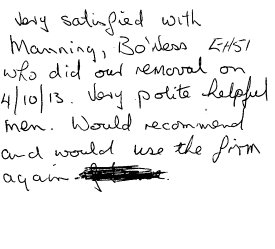 Very satisfied with
Manning, Bo'ness EH51
who did our removal on
4/10/13. Very polite helpful
men. Would recommend
and would use the firm
again